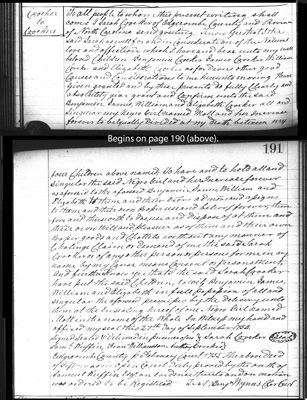 Crocker
to
Crockers
To all people to whom this present writing shall
come I Sarah Crocker of Edgecomb County and Province
of North Carolina send greeting. Know ye that I the
said Sarah as well for and in Consideration of the Natural
love and affection which I have and bear unto my well
beloved Children Benjamin Crocker James Crocker William
Crocker and Elizabeth for divers other good
Causes and Considerations to me hereunto moving Have
given granted and by these presents do fully Clearly and
absolutely give grant and Confirm unto the said
Benjamin James William and Elizabeth Crocker all and
singular my Negro Girl named Moll and her Increase
forever to be equally divided at my Death between my
Begins on page 190 (above).
191
four Children above named To have and to hold all and
singular the said Negro Girl and her Increase forever
aforesaid to the aforesaid Benjamin James William and
Elizabeth to them and their heirs and assigns
to them and their own Proper uses and behoof forever
and thereof to use and dispose of at them and
their own Will and pleasure as of them and their own
proper goods and Chattels without any manner of
Challenge Claim or demand of me the said Sarah
Crocker or of any other person or persons for me in my
name by my Cause means Consent or procurement
and further know ye that I the said Sarah Crocker
have put the said Children to wit Benjamin James
William and Elizabeth in peaceable possession of all and
singular the aforesaid premises by the delivery unto
them at the ensealing hereof one Negro Girl named
Moll in the name of the whole In Witness my hand and
affixed my seal this 27th day of September 1754
Signed Sealed & Delivered in presence of us } Sarah Crocker (Seal)
Saml Ruffin
Edgecomb County ss February Court 1755 The above deed
of Gift was in open Court duly proved by the oath of
Samuel Ruffin and on motion
was ordered to be Registered Test. Benj Wynns Cler Cur